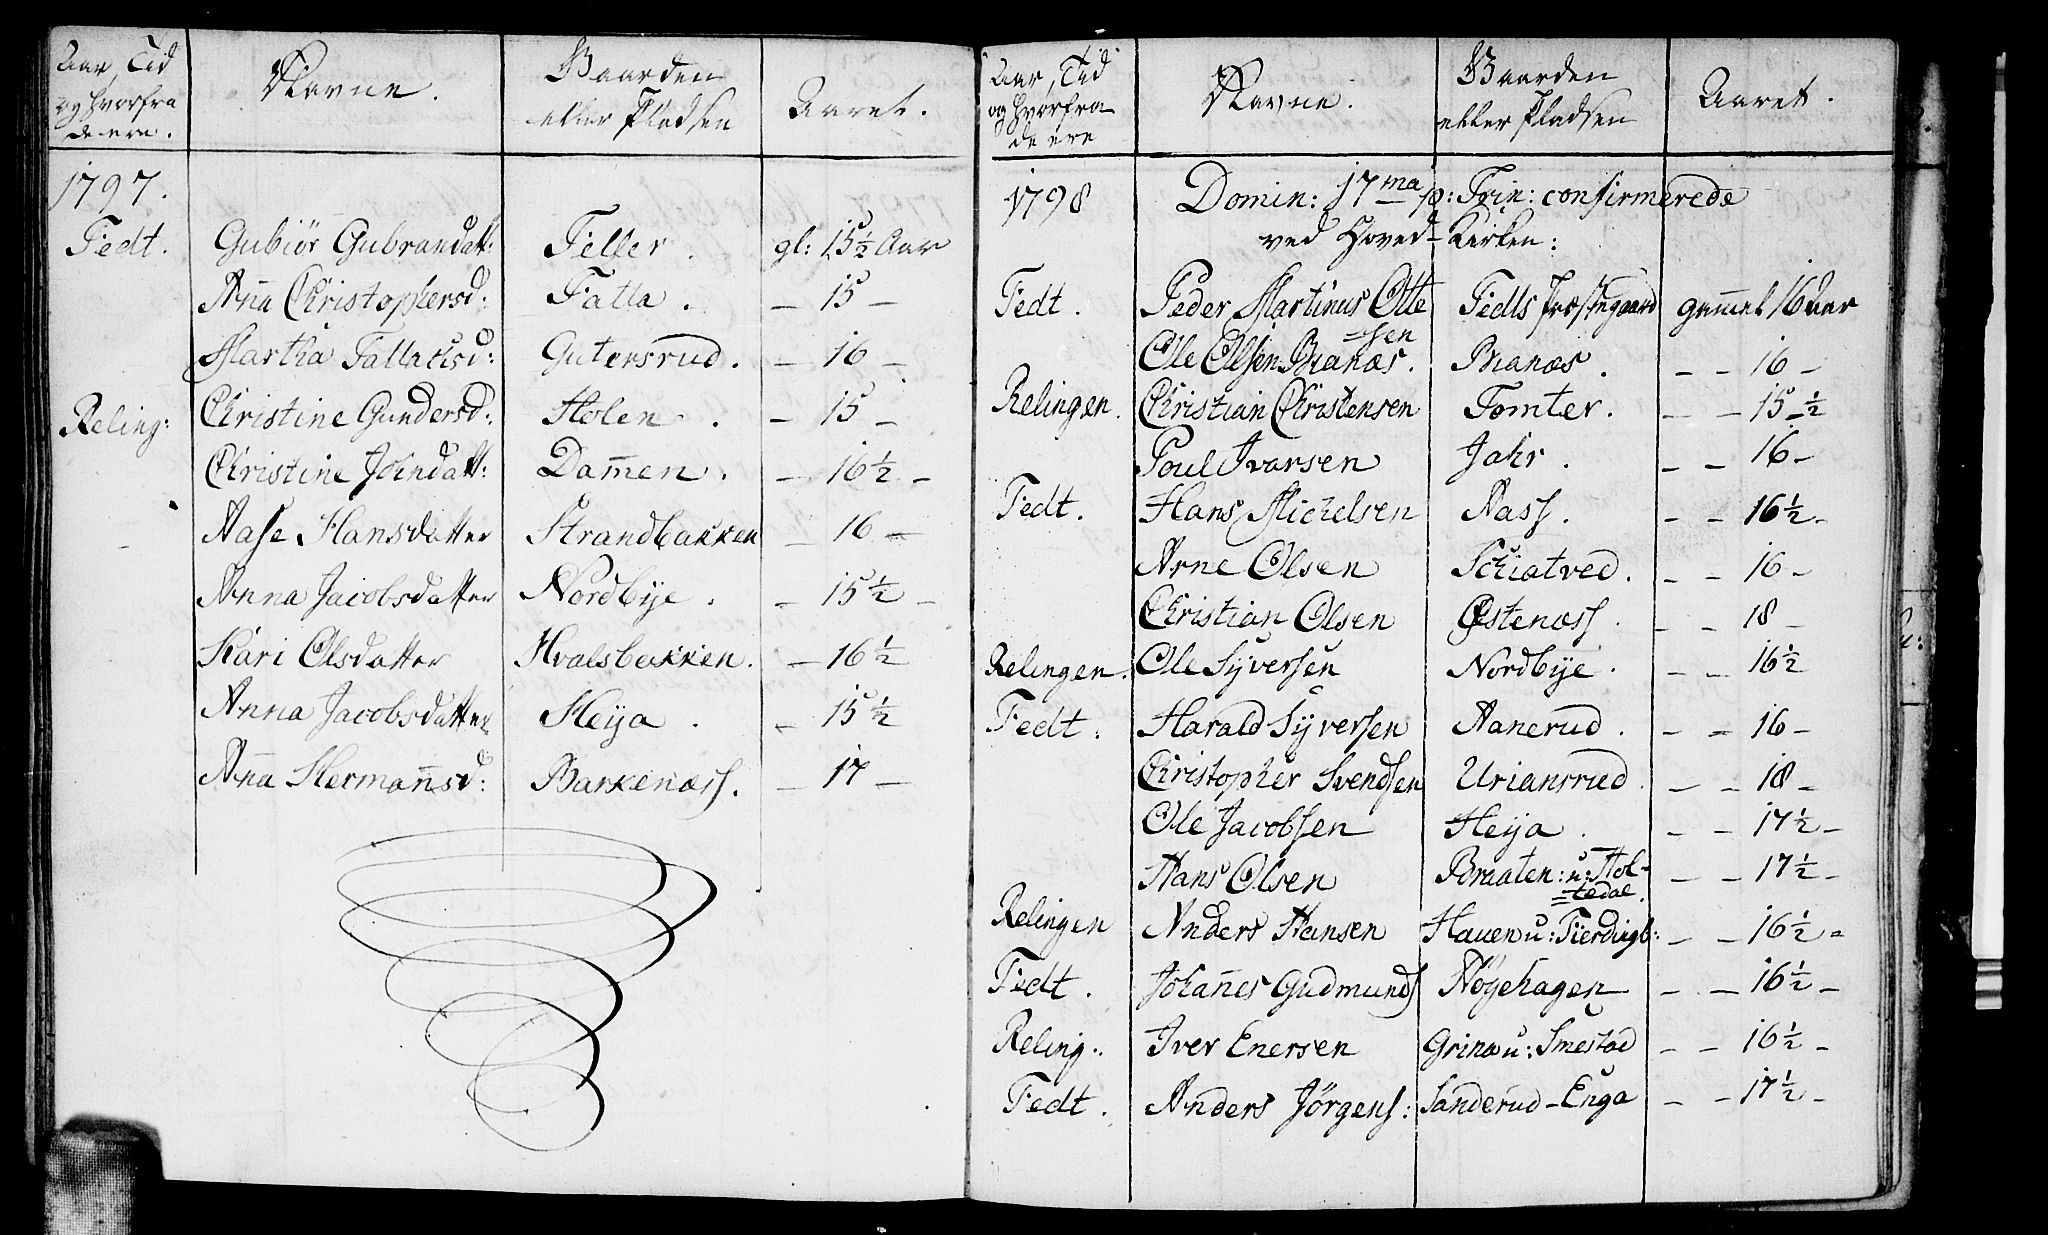 Aar, Tid
og hvorfra
de ere.
Navne.
Gaarden
eller Pladsen
Aaret.
1797.
Fedt. Gubiör Gubrandatt: Feller. gl: 15 1/2 Aar
An̄a Christophersd: Falla. — 15 —
Martha Tallachsd: Gutersrud. — 16 —
Reling: Christine Gundersd: Holen. — 15 —
Christine Johndatt: Dam̄en. — 16 1/2 —
Aase Hansdatter Strandbakken — 16 —
Anna Jacobsdatter Nordbye. — 15 1/2 —
Kari Olsdatter Hvalsbakken. — 16 1/2
Anna Jacobsdatter Heija. — 15 1/2
An̄a Herman̄sd: Barkenæss. — 17 —
Aar, Tid
og hvorfra
de ere
Navne.
Gaarden
eller Pladsen
Aaret.
1798 Domin: 17ma p: Trin: confirmerede
ved Hoved-Kirken:
Fedt. Peder Martinus Otte Fedts Præstegaard gam̄el 16 Aar
=sen
Ole Olsen Branæs. Branæs. — — 16 —
Relingen. Christian Christensen Tomter. — — 15 1/2
Poul Ivarsen Jahr. — — 16 —
Fedt. Hans Michelsen Nass. — — 16 1/2 —
Arne Olsen Schiatved. — — 16 —
Christian Olsen Østenæss. — — 18 —
Relingen. Ole Syversen Nordbye. — — 16 1/2
Fedt. Harald Syversen Aanerud. — — 16 —
Christopher Svendsen Uriansrud. — — 18 —
Ole Jacobsen Heija. — — 17 1/2 —
Hans Olsen Braaten: u: Hol- — — 17 1/2 —
=tedal.
Relingen Anders Hansen Hauen u: Fierdingb: — — 16 1/2 =
Fedt. Johan̄es Gudmunds Høyehagen — — 16 1/2 —
Reling: Iver Enersen Grina u: Smestad — — 16 1/2 —
Fedt. Anders Jörgens: Sanderud-Enga — — 17 1/2 —